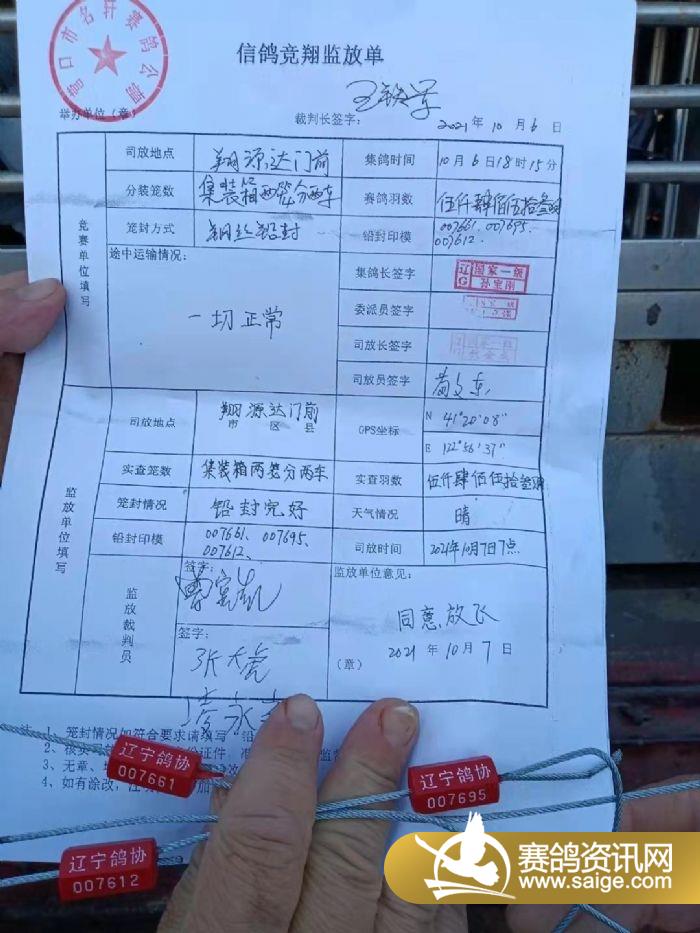 营口市名轩赛鸽公棚
信鸽竞翔监放单
举办单位（章）
裁判长签字：
2021年10月6日
竞赛单位填写
司放地点 翔源达门前 集鸽时间 10月6日18时15分
分装笼数 集装箱两笼分两车 赛鸽羽数 伍仟肆佰伍拾叁羽
笼封方式 钢丝铅封 铅封印模 007661、007695、
007612、
途中运输情况：
一切正常
集鸽长签字 辽G 国家一级
孙宝刚
委派员签字
司放长签字
司放员签字
监放单位填写
司放地点 翔源达门前
市 区 县
GPS坐标 N 41°20′08″
E 122°56′37″
实查笼数 集装箱两笼分两车 实查羽数 伍仟肆佰伍拾叁羽
笼封情况 铅封完好 天气情况 晴
铅封印模 007661、007695、
007612、
司放时间 2021年10月7日7点
监放裁判员
签字：
签字：
张大虎
监放单位意见：
同意放飞
（章） 2021年10月7日
1、笼封情况如符合要求请填写
2、核实
3、无章、
4、如有涂改，
辽宁鸽协
007661
辽宁鸽协
007695
辽宁鸽协
007612
赛鸽资讯网
www.saige.com